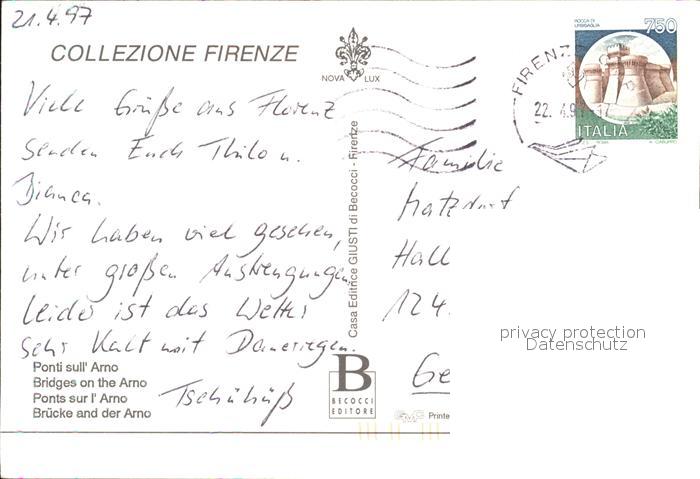 21.4.97
COLLEZIONE FIRENZE
NOVA LUX
Viele Grüße aus Florenz
senden Euch Thilo u.
Bianca.
Wir haben viel gesehen,
unter großen Anstrengungen.
Leider ist das Wetter
sehr kalt mit Dauerregen.
Tschühüß
Ponti sull' Arno
Bridges on the Arno
Ponts sur l' Arno
Brücke and der Arno
Casa Editrice GIUSTI di Becocci - Firenze
B
BECOCCI
EDITORE
ROCCA DI
URBISAGLIA
750
ITALIA
FIRENZ
22.4.9
Familie
Hall
124.
Ge
privacy protection
Datenschutz
Printe